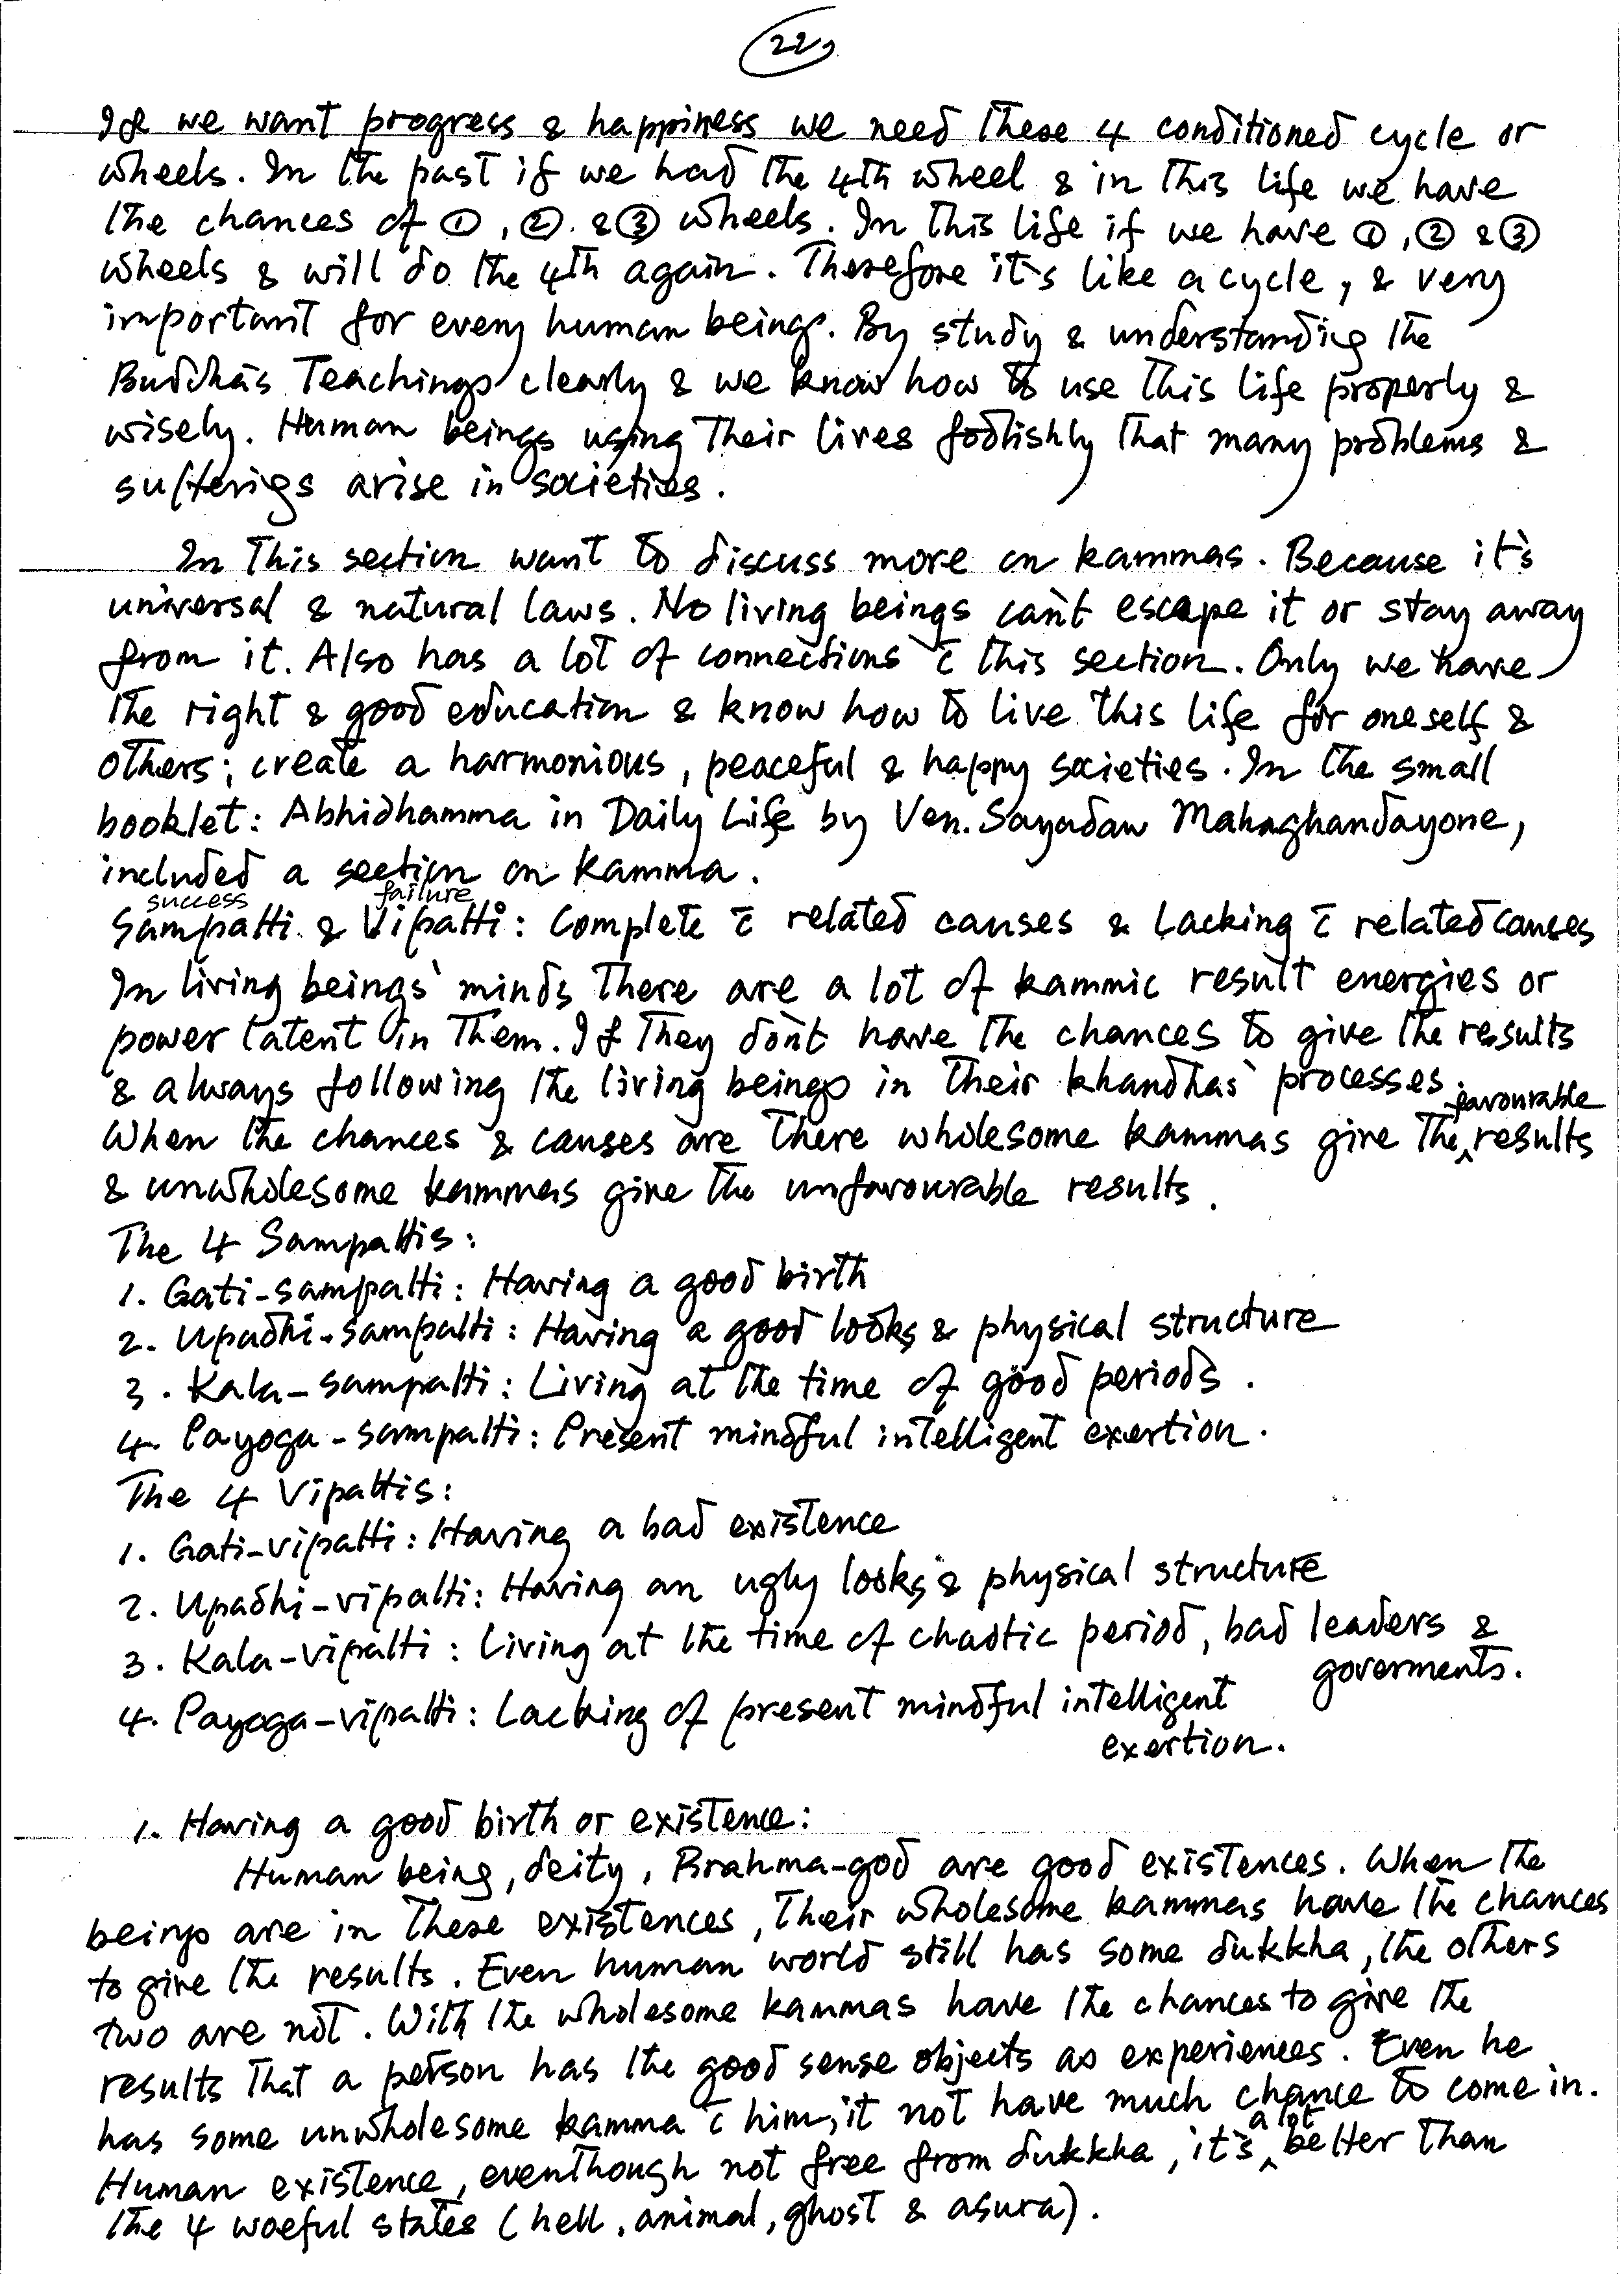 22,
If we want progress & happiness we need these 4 conditioned cycle or
wheels. In the past if we had the 4th wheel & in this life we have
the chances of ①, ② & ③ wheels. In this life if we have ①, ② & ③
wheels & will do the 4th again. Therefore it's like a cycle, & very
important for every human beings. By study & understandig the
Buddha's Teachings clearly & we know how to use this life properly &
wisely. Human beings using their lives foolishly that many problems &
sufferigs arise in societies.
In this section want to discuss more on kammas. Because it's
universal & natural laws. No living beings can't escape it or stay away
from it. Also has a lot of connections c̄ this section. Only we have
the right & good education & know how to live this life for oneself &
others; create a harmonious, peaceful & happy societies. In the small
booklet: Abhidhamma in Daily Life by Ven. Sayadaw Mahaghandayone,
included a section on kamma.
success failure
Sampatti & Vipatti: Complete c̄ related causes & Lacking c̄ related causes
In living beings' minds there are a lot of kammic result energies or
power latent in them. If they don't have the chances to give the results
& always following the living beings in their khandhas' processes.
When the chances & causes are there wholesome kammas give the ^favourable results
& unwholesome kammas give the unfavourable results.
The 4 Sampattis:
1. Gati-sampatti: Having a good birth
2. Upadhi-sampatti: Having a good looks & physical structure
3. Kala-sampatti: Living at the time of good periods.
4. Payoga-sampatti: Present mindful intelligent exertion.
The 4 Vipattis:
1. Gati-vipatti: Having a bad existence
2. Upadhi-vipatti: Having an ugly looks & physical structure
3. Kala-vipatti: Living at the time of chaotic period, bad leaders &
goverments.
4. Payoga-vipatti: Lacking of present mindful intelligent
exertion.
1. Having a good birth or existence:
Human being, deity, Brahma-god are good existences. When the
beings are in these existences, their wholesome kammas have the chances
to give the results. Even human world still has some dukkha, the others
two are not. With the wholesome kammas have the chances to give the
results that a person has the good sense objects as experiences. Even he
has some unwholesome kamma c̄ him, it not have much chance to come in.
Human existence, eventhough not free from dukkha, it's ^a lot better than
the 4 woeful states (hell, animal, ghost & asura).